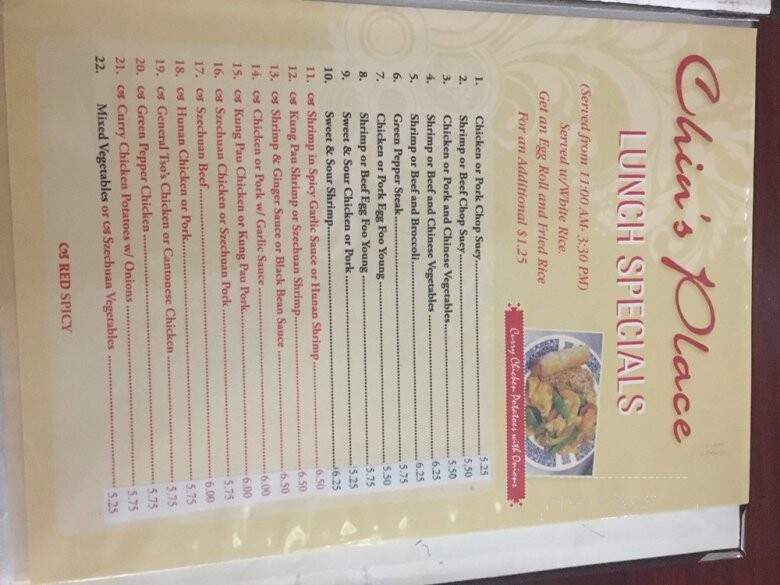 Chin's Place
LUNCH SPECIALS
(Served from 11:00 AM- 3:30 PM)
Served w/White Rice.
Get an Egg Roll and Fried Rice
For an Additional $1.25
Curry Chicken Potatoes with Onions
1. Chicken or Pork Chop Suey 5.25
2. Shrimp or Beef Chop Suey 5.50
3. Chicken or Pork and Chinese Vegetables 5.50
4. Shrimp or Beef and Chinese Vegetables 6.25
5. Shrimp or Beef and Broccoli 6.25
6. Green Pepper Steak 5.75
7. Chicken or Pork Egg Foo Young 5.50
8. Shrimp or Beef Egg Foo Young 5.75
9. Sweet & Sour Chicken or Pork 5.25
10. Sweet & Sour Shrimp 6.25
11. Shrimp in Spicy Garlic Sauce or Hunan Shrimp 6.50
12. Kung Pau Shrimp or Szechuan Shrimp 6.50
13. Shrimp & Ginger Sauce or Black Bean Sauce 6.50
14. Chicken or Pork w/ Garlic Sauce 6.00
15. Kung Pau Chicken or Kung Pau Pork 6.00
16. Szechuan Chicken or Szechuan Pork 5.75
17. Szechuan Beef 6.00
18. Hunan Chicken or Pork 5.75
19. General Tso's Chicken or Cantonese Chicken 5.75
20. Green Pepper Chicken 5.75
21. Curry Chicken Potatoes w/ Onions 5.75
22. Mixed Vegetables or Szechuan Vegetables 5.25
RED SPICY